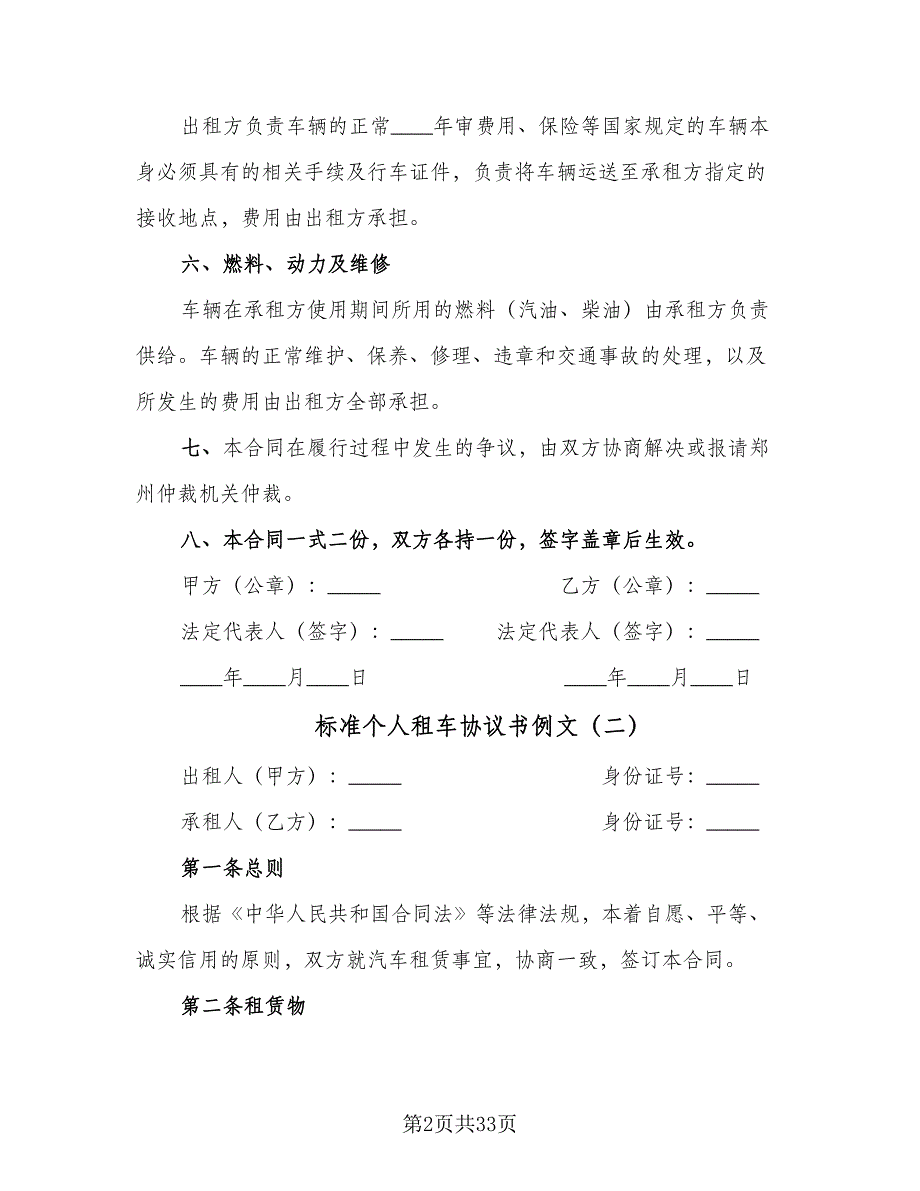 出租方负责车辆的正常____年审费用、保险等国家规定的车辆本
身必须具有的相关手续及行车证件，负责将车辆运送至承租方指定的
接收地点，费用由出租方承担。
六、燃料、动力及维修
车辆在承租方使用期间所用的燃料（汽油、柴油）由承租方负责
供给。车辆的正常维护、保养、修理、违章和交通事故的处理，以及
所发生的费用由出租方全部承担。
七、本合同在履行过程中发生的争议，由双方协商解决或报请郑
州仲裁机关仲裁。
八、本合同一式二份，双方各持一份，签字盖章后生效。
甲方（公章）：_____ 乙方（公章）：_____
法定代表人（签字）：_____ 法定代表人（签字）：_____
____年____月____日 ____年____月____日
标准个人租车协议书例文（二）
出租人（甲方）：_____ 身份证号：_____
承租人（乙方）：_____ 身份证号：_____
第一条总则
根据《中华人民共和国合同法》等法律法规，本着自愿、平等、
诚实信用的原则，双方就汽车租赁事宜，协商一致，签订本合同。
第二条租赁物
第2页共33页